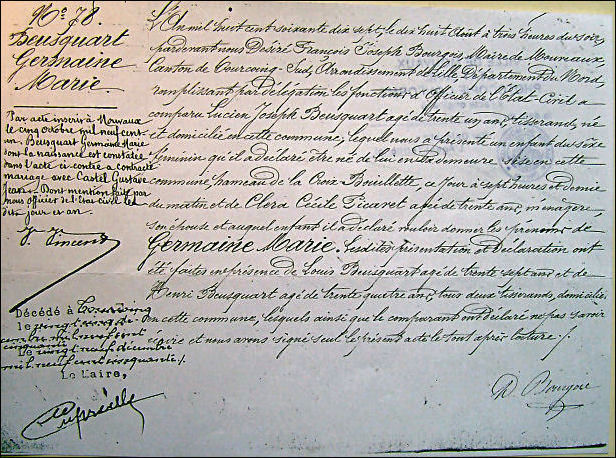 No. 78.
Beusquart
Germaine
Marie.
Par acte inscrit à Mouvaux
le cinq Octobre mil neuf cent
un. Beusquart Germaine Marie
dont la naissance est constatée
dans l'acte ci-contre a contracté
mariage avec Castel Gustave
Jean. Dont mention faite par
nous Officier de l'Etat Civil le
dix jour et an.
J. Vincent
Décédé à Tourcoing
le vingt
mil neuf cent
cinquante
Le vingt neuf décembre
mil neuf cent cinquante ./.
Le Maire,
L'An mil huit cent soixante dix sept, le dix huit Août à trois heures du soir,
pardevant nous Désiré François Joseph Bourgois Maire de Mouveaux
Canton de Tourcoing-Sud, Arrondissement de Lille, Département du Nord,
remplissant par délégation les fonctions d'Officier de l'Etat-Civil a
comparu Lucien Joseph Beusquart âgé de trente un ans, tisserand, né
et domicilié en cette commune, lequel nous a présenté un enfant du sexe
féminin qu'il a déclaré être né de lui en sa demeure sise en cette
commune, hameau de la Croix Bouillette, ce jour à sept heures et demie
du matin et de Clera Cécile Ficaret âgée de trente ans, ménagère,
son épouse et auquel enfant il a déclaré vouloir donner les prénoms de
Germaine Marie. Lesdites présentation et Déclaration ont
été faites en présence de Louis Beusquart âgé de trente sept ans et de
Henri Beusquart âgé de trente quatre ans, tous deux tisserands, domiciliés
en cette commune, lesquels ainsi que le comparant ont déclaré ne pas savoir
écrire et nous avons signé seul le présent acte le tout après lecture ./.
D. Bourgois